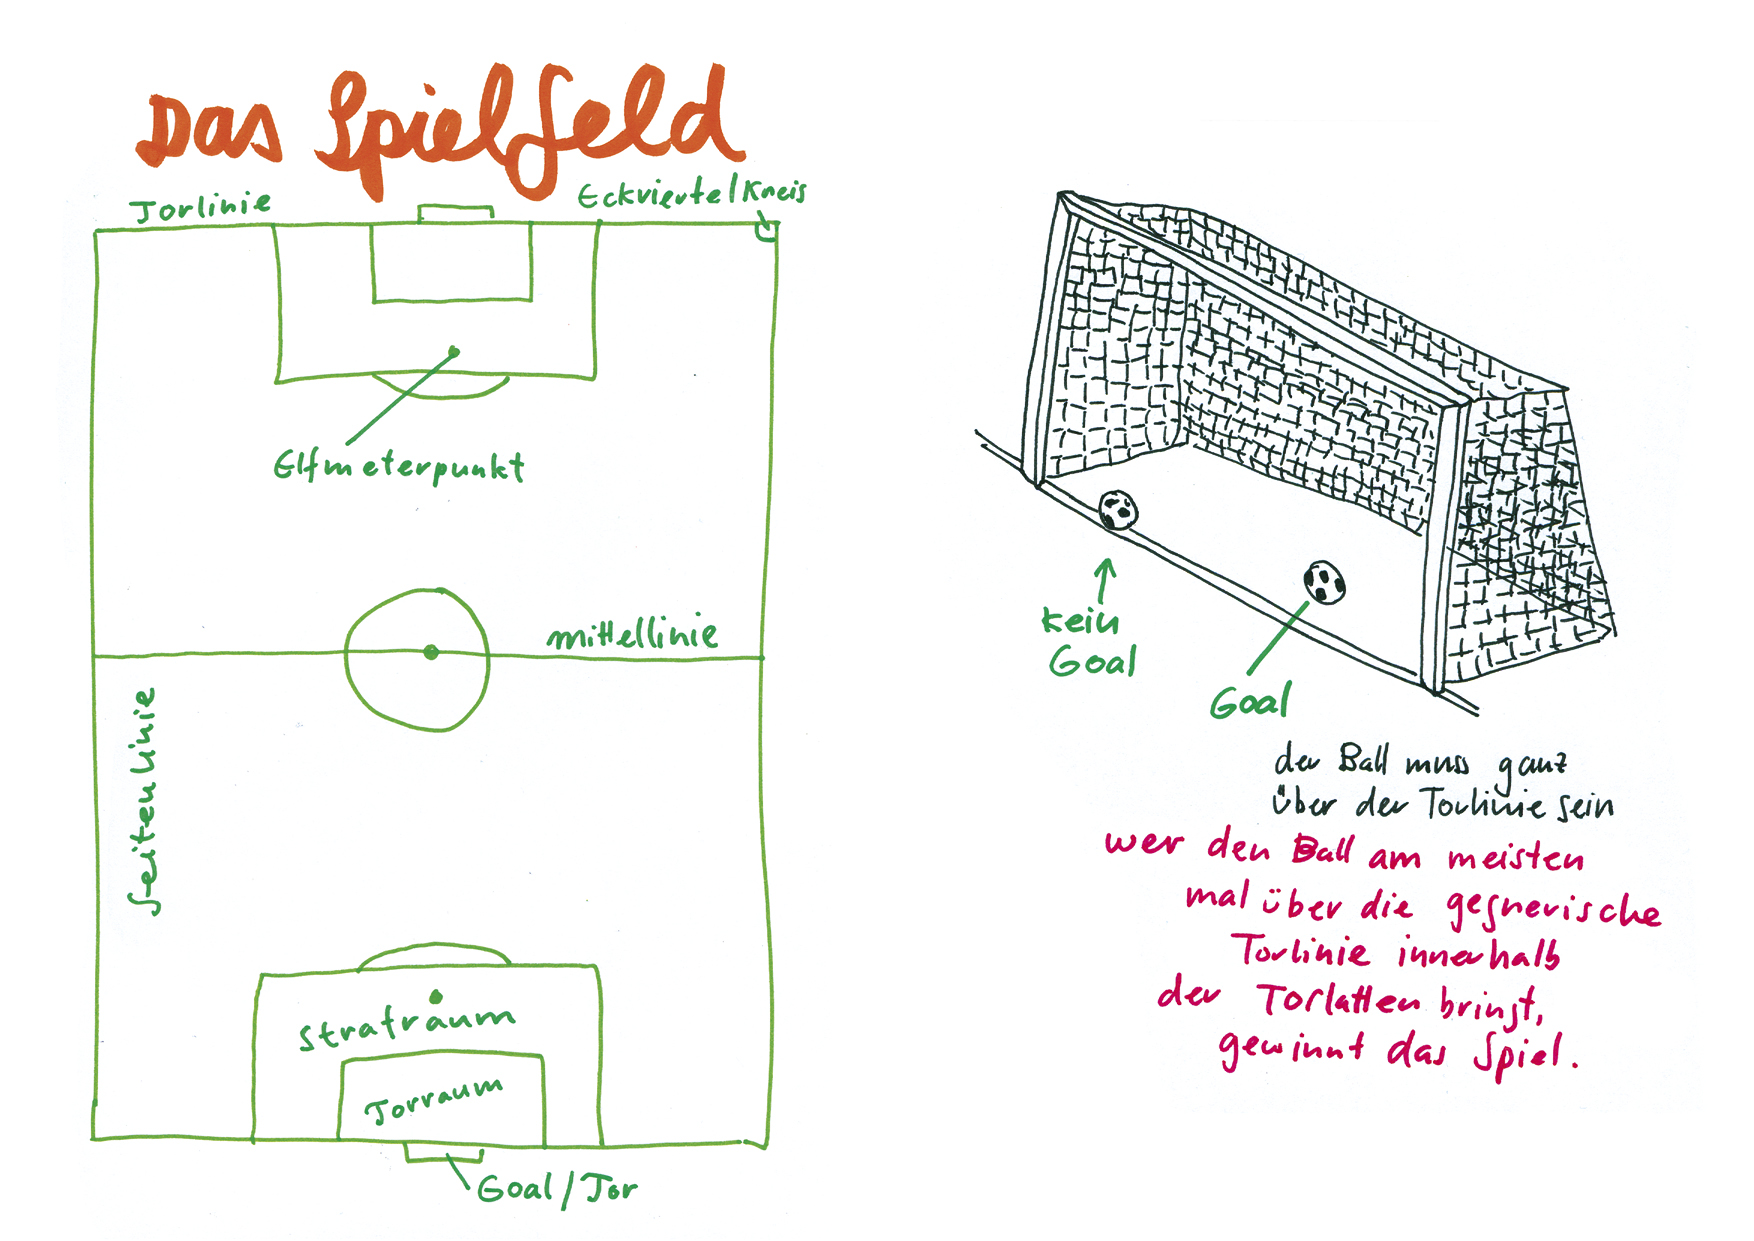 Das Spielfeld
Torlinie
Eckviertelkreis
Elfmeterpunkt
mittellinie
Seitenlinie
Strafraum
Torraum
Goal/Tor
kein
Goal
Goal
der Ball muss ganz
über der Torlinie sein
wer den Ball am meisten
mal über die gegnerische
Torlinie innerhalb
der Torlatten bringt,
gewinnt das Spiel.